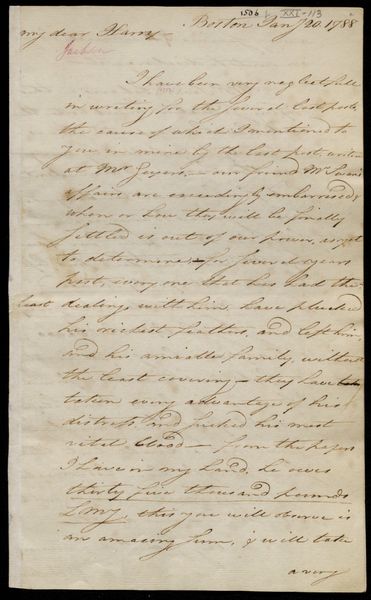 1506 XXI-113
Boston Jany 20. 1788
my dear Harry
Jackson
I have been very neglectfull
in writing for the several last posts
the cause of which I mentioned to
you in mine by the last post, written
at Mrs — our friend Mr Swan's
affairs are exceedingly embarrassed,
when or how they will be finally
settled is out of our power, as yet
to determine — for several years
past, every one that has had the
least dealings with him, have plucked
his richest feathers, and left him,
and his amiable family without
the least covering — they have
taken every advantage of his
distress and sucked his most
vital blood — from the papers
I have in my hand, he owes
thirty five thousand pounds
LMy, this you will observe is
an amazing sum, & will take
a very